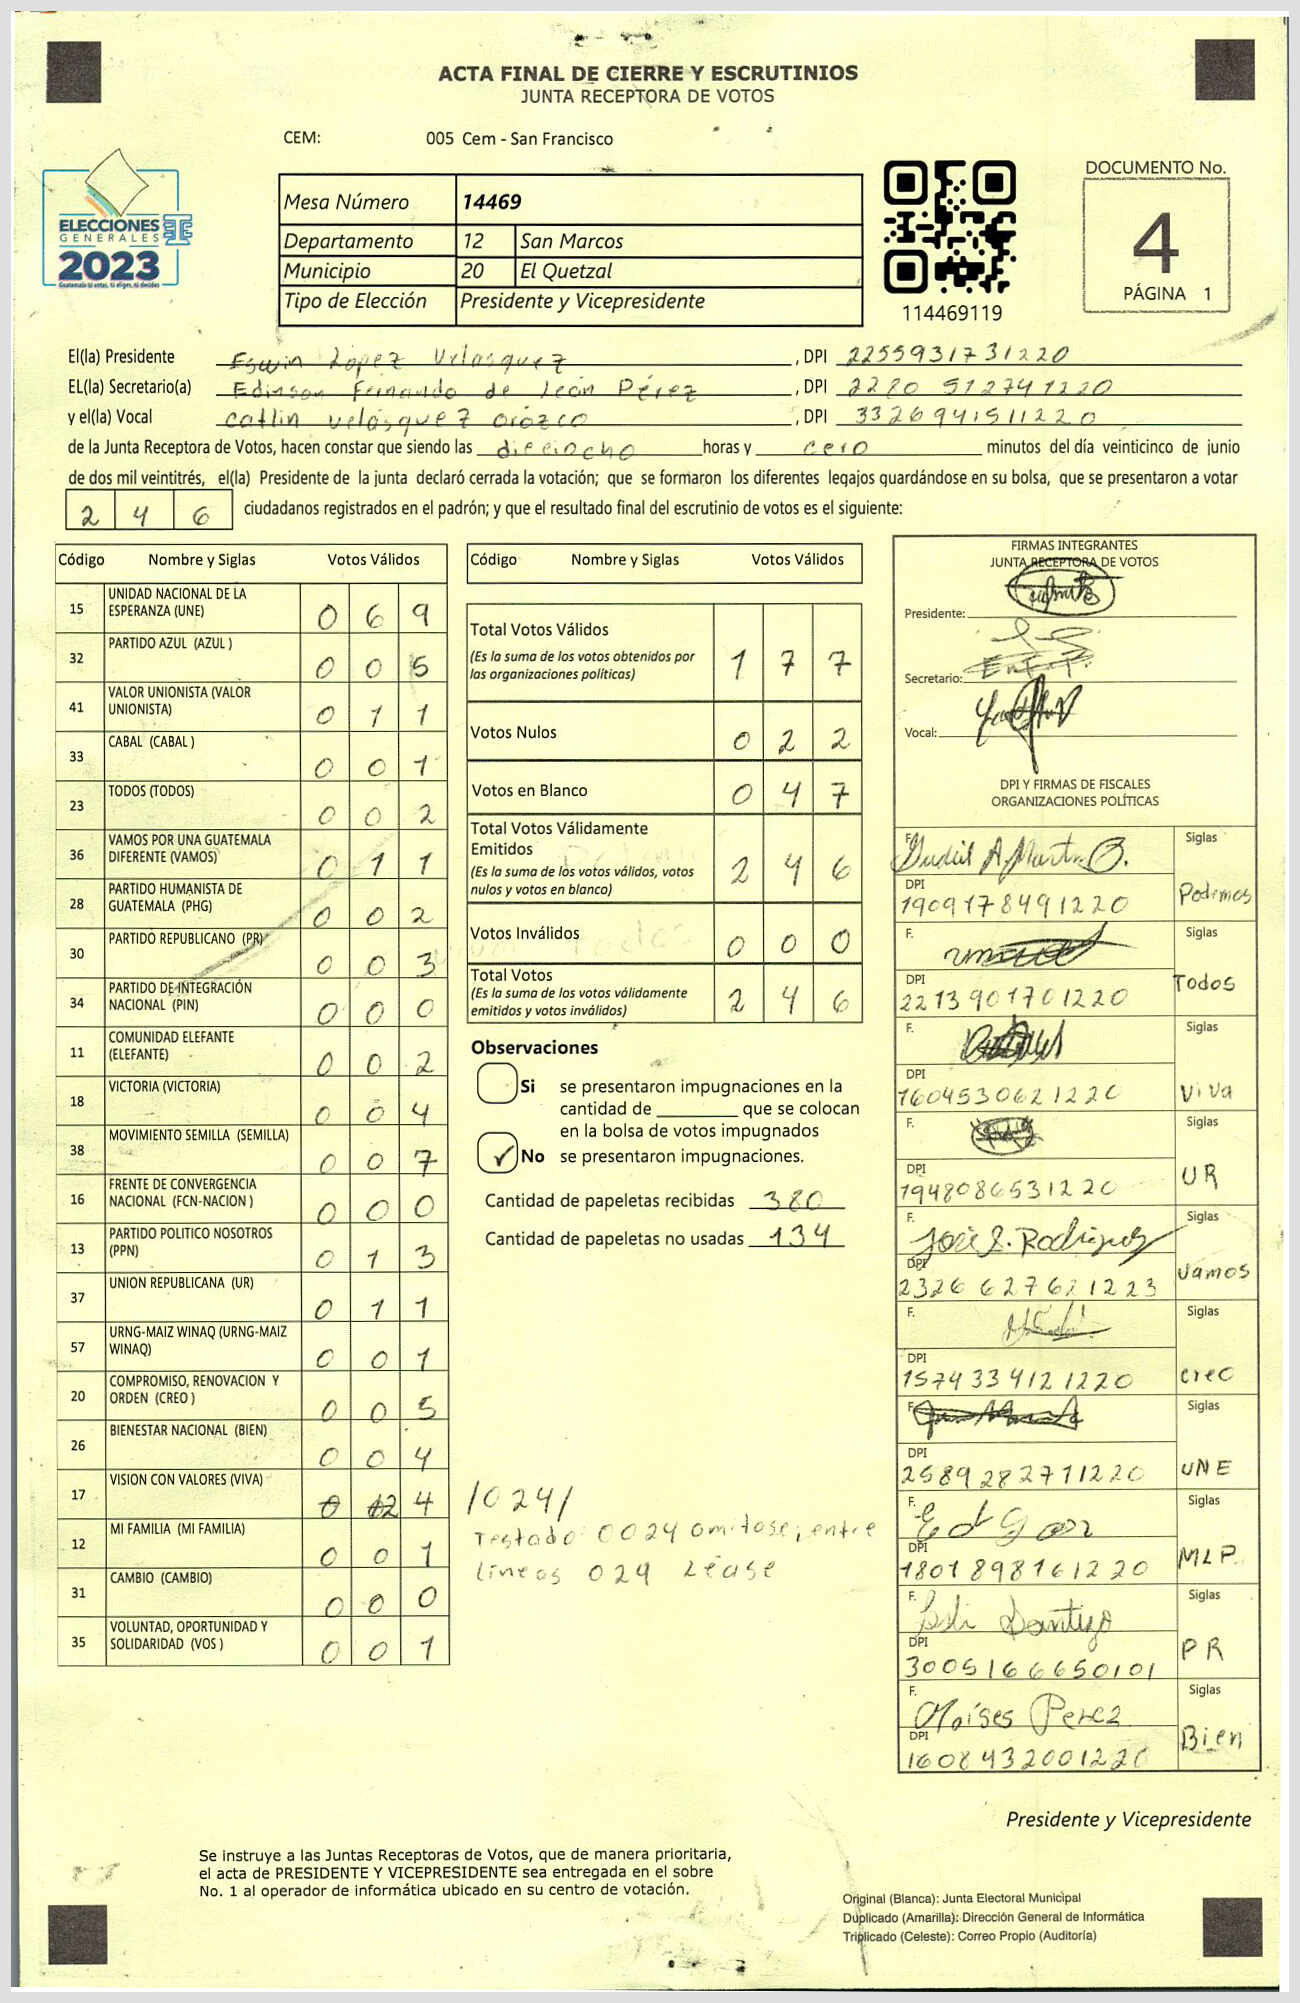 ACTA FINAL DE CIERRE Y ESCRUTINIOS
JUNTA RECEPTORA DE VOTOS
CEM: 005 Cem - San Francisco
ELECCIONES
GENERALES
2023
Guatemala tú votas, tú eliges, tú decides
Mesa Número 14469
Departamento 12 San Marcos
Municipio 20 El Quetzal
Tipo de Elección Presidente y Vicepresidente
114469119
DOCUMENTO No.
4
PÁGINA 1
El(la) Presidente Eswin López Velasquez , DPI 2255931731220
EL(la) Secretario(a) Edinson Fernando de León Pérez , DPI 2280 512741220
y el(la) Vocal Catlin Velásquez Orózco , DPI 3326941511220
de la Junta Receptora de Votos, hacen constar que siendo las dieciocho horas y cero minutos del día veinticinco de junio
de dos mil veintitrés, el(la) Presidente de la junta declaró cerrada la votación; que se formaron los diferentes legajos guardándose en su bolsa, que se presentaron a votar
2 4 6 ciudadanos registrados en el padrón; y que el resultado final del escrutinio de votos es el siguiente:
Código Nombre y Siglas Votos Válidos
15 UNIDAD NACIONAL DE LA ESPERANZA (UNE) 0 6 9
32 PARTIDO AZUL (AZUL ) 0 0 5
41 VALOR UNIONISTA (VALOR UNIONISTA) 0 1 1
33 CABAL (CABAL ) 0 0 1
23 TODOS (TODOS) 0 0 2
36 VAMOS POR UNA GUATEMALA DIFERENTE (VAMOS) 0 1 1
28 PARTIDO HUMANISTA DE GUATEMALA (PHG) 0 0 2
30 PARTIDO REPUBLICANO (PR) 0 0 3
34 PARTIDO DE INTEGRACIÓN NACIONAL (PIN) 0 0 0
11 COMUNIDAD ELEFANTE (ELEFANTE) 0 0 2
18 VICTORIA (VICTORIA) 0 0 4
38 MOVIMIENTO SEMILLA (SEMILLA) 0 0 7
16 FRENTE DE CONVERGENCIA NACIONAL (FCN-NACION ) 0 0 0
13 PARTIDO POLITICO NOSOTROS (PPN) 0 1 3
37 UNION REPUBLICANA (UR) 0 1 1
57 URNG-MAIZ WINAQ (URNG-MAIZ WINAQ) 0 0 1
20 COMPROMISO, RENOVACION Y ORDEN (CREO ) 0 0 5
26 BIENESTAR NACIONAL (BIEN) 0 0 4
17 VISION CON VALORES (VIVA) 0 02 4
12 MI FAMILIA (MI FAMILIA) 0 0 1
31 CAMBIO (CAMBIO) 0 0 0
35 VOLUNTAD, OPORTUNIDAD Y SOLIDARIDAD (VOS ) 0 0 1
Código Nombre y Siglas Votos Válidos
Total Votos Válidos 1 7 7
(Es la suma de los votos obtenidos por las organizaciones políticas)
Votos Nulos 0 2 2
Votos en Blanco 0 4 7
Total Votos Válidamente Emitidos 2 4 6
(Es la suma de los votos válidos, votos nulos y votos en blanco)
Votos Inválidos 0 0 0
Total Votos 2 4 6
(Es la suma de los votos válidamente emitidos y votos inválidos)
Observaciones
Si se presentaron impugnaciones en la
cantidad de ________ que se colocan
en la bolsa de votos impugnados
✓ No se presentaron impugnaciones.
Cantidad de papeletas recibidas 380
Cantidad de papeletas no usadas 134
/024/
Testado 0024 omitase, entre
líneas 024 Léase
FIRMAS INTEGRANTES
JUNTA RECEPTORA DE VOTOS
Presidente:
Secretario:
Vocal:
DPI Y FIRMAS DE FISCALES
ORGANIZACIONES POLÍTICAS
F. Siglas
DPI 1909178491220 Podemos
F. Siglas
DPI 2213901701220 Todos
F. Siglas
DPI 1604530621220 Viva
F. Siglas
DPI 1948086531220 UR
F. José S. Rodriguez Siglas
DPI 2326 627621223 Vamos
F. Siglas
DPI 1574334121220 creo
F. Siglas
DPI 2589282711220 UNE
F. Siglas
DPI 1801898161220 MLP.
F. Siglas
DPI 3005166650101 PR
F. Moises Perez Siglas
DPI 1608432001220 Bien
Presidente y Vicepresidente
Se instruye a las Juntas Receptoras de Votos, que de manera prioritaria,
el acta de PRESIDENTE Y VICEPRESIDENTE sea entregada en el sobre
No. 1 al operador de informática ubicado en su centro de votación.
Original (Blanca): Junta Electoral Municipal
Duplicado (Amarilla): Dirección General de Informática
Triplicado (Celeste): Correo Propio (Auditoría)